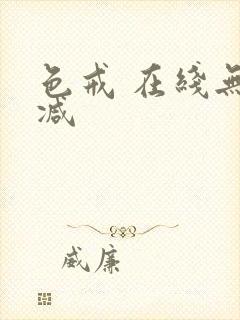 色戒 在綫無
减
威廉